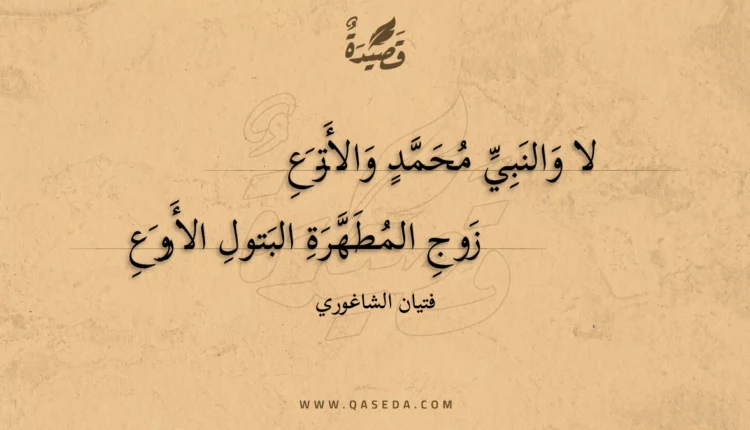 قَصِيدَةٌ
لا وَالنَبِيِّ مُحَمَّدٍ وَالأَنزَعِ
زَوجِ المُطَهَّرَةِ البَتولِ الأَروَعِ
فتيان الشاغوري
WWW.QASEDA.COM